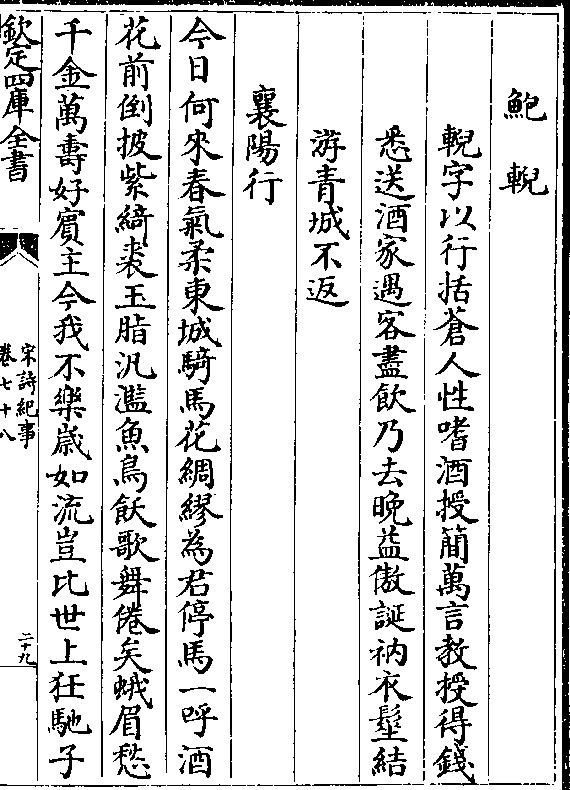 鮑輗
輗字以行括蒼人性嗜酒授簡萬言教授得錢
悉送酒家遇客盡飲乃去晚益傲誕衲衣髽結
游青城不返
襄陽行
今日何來春氣柔東城騎馬花綢繆為君停馬一呼酒
花前倒披紫綺裘玉脂汎灩魚鳥飫歌舞倦矣蛾眉愁
千金萬壽好賓主今我不樂歳如流豈比世上狂馳子
欽定四庫全書
宋詩紀事
卷七十八
二十九